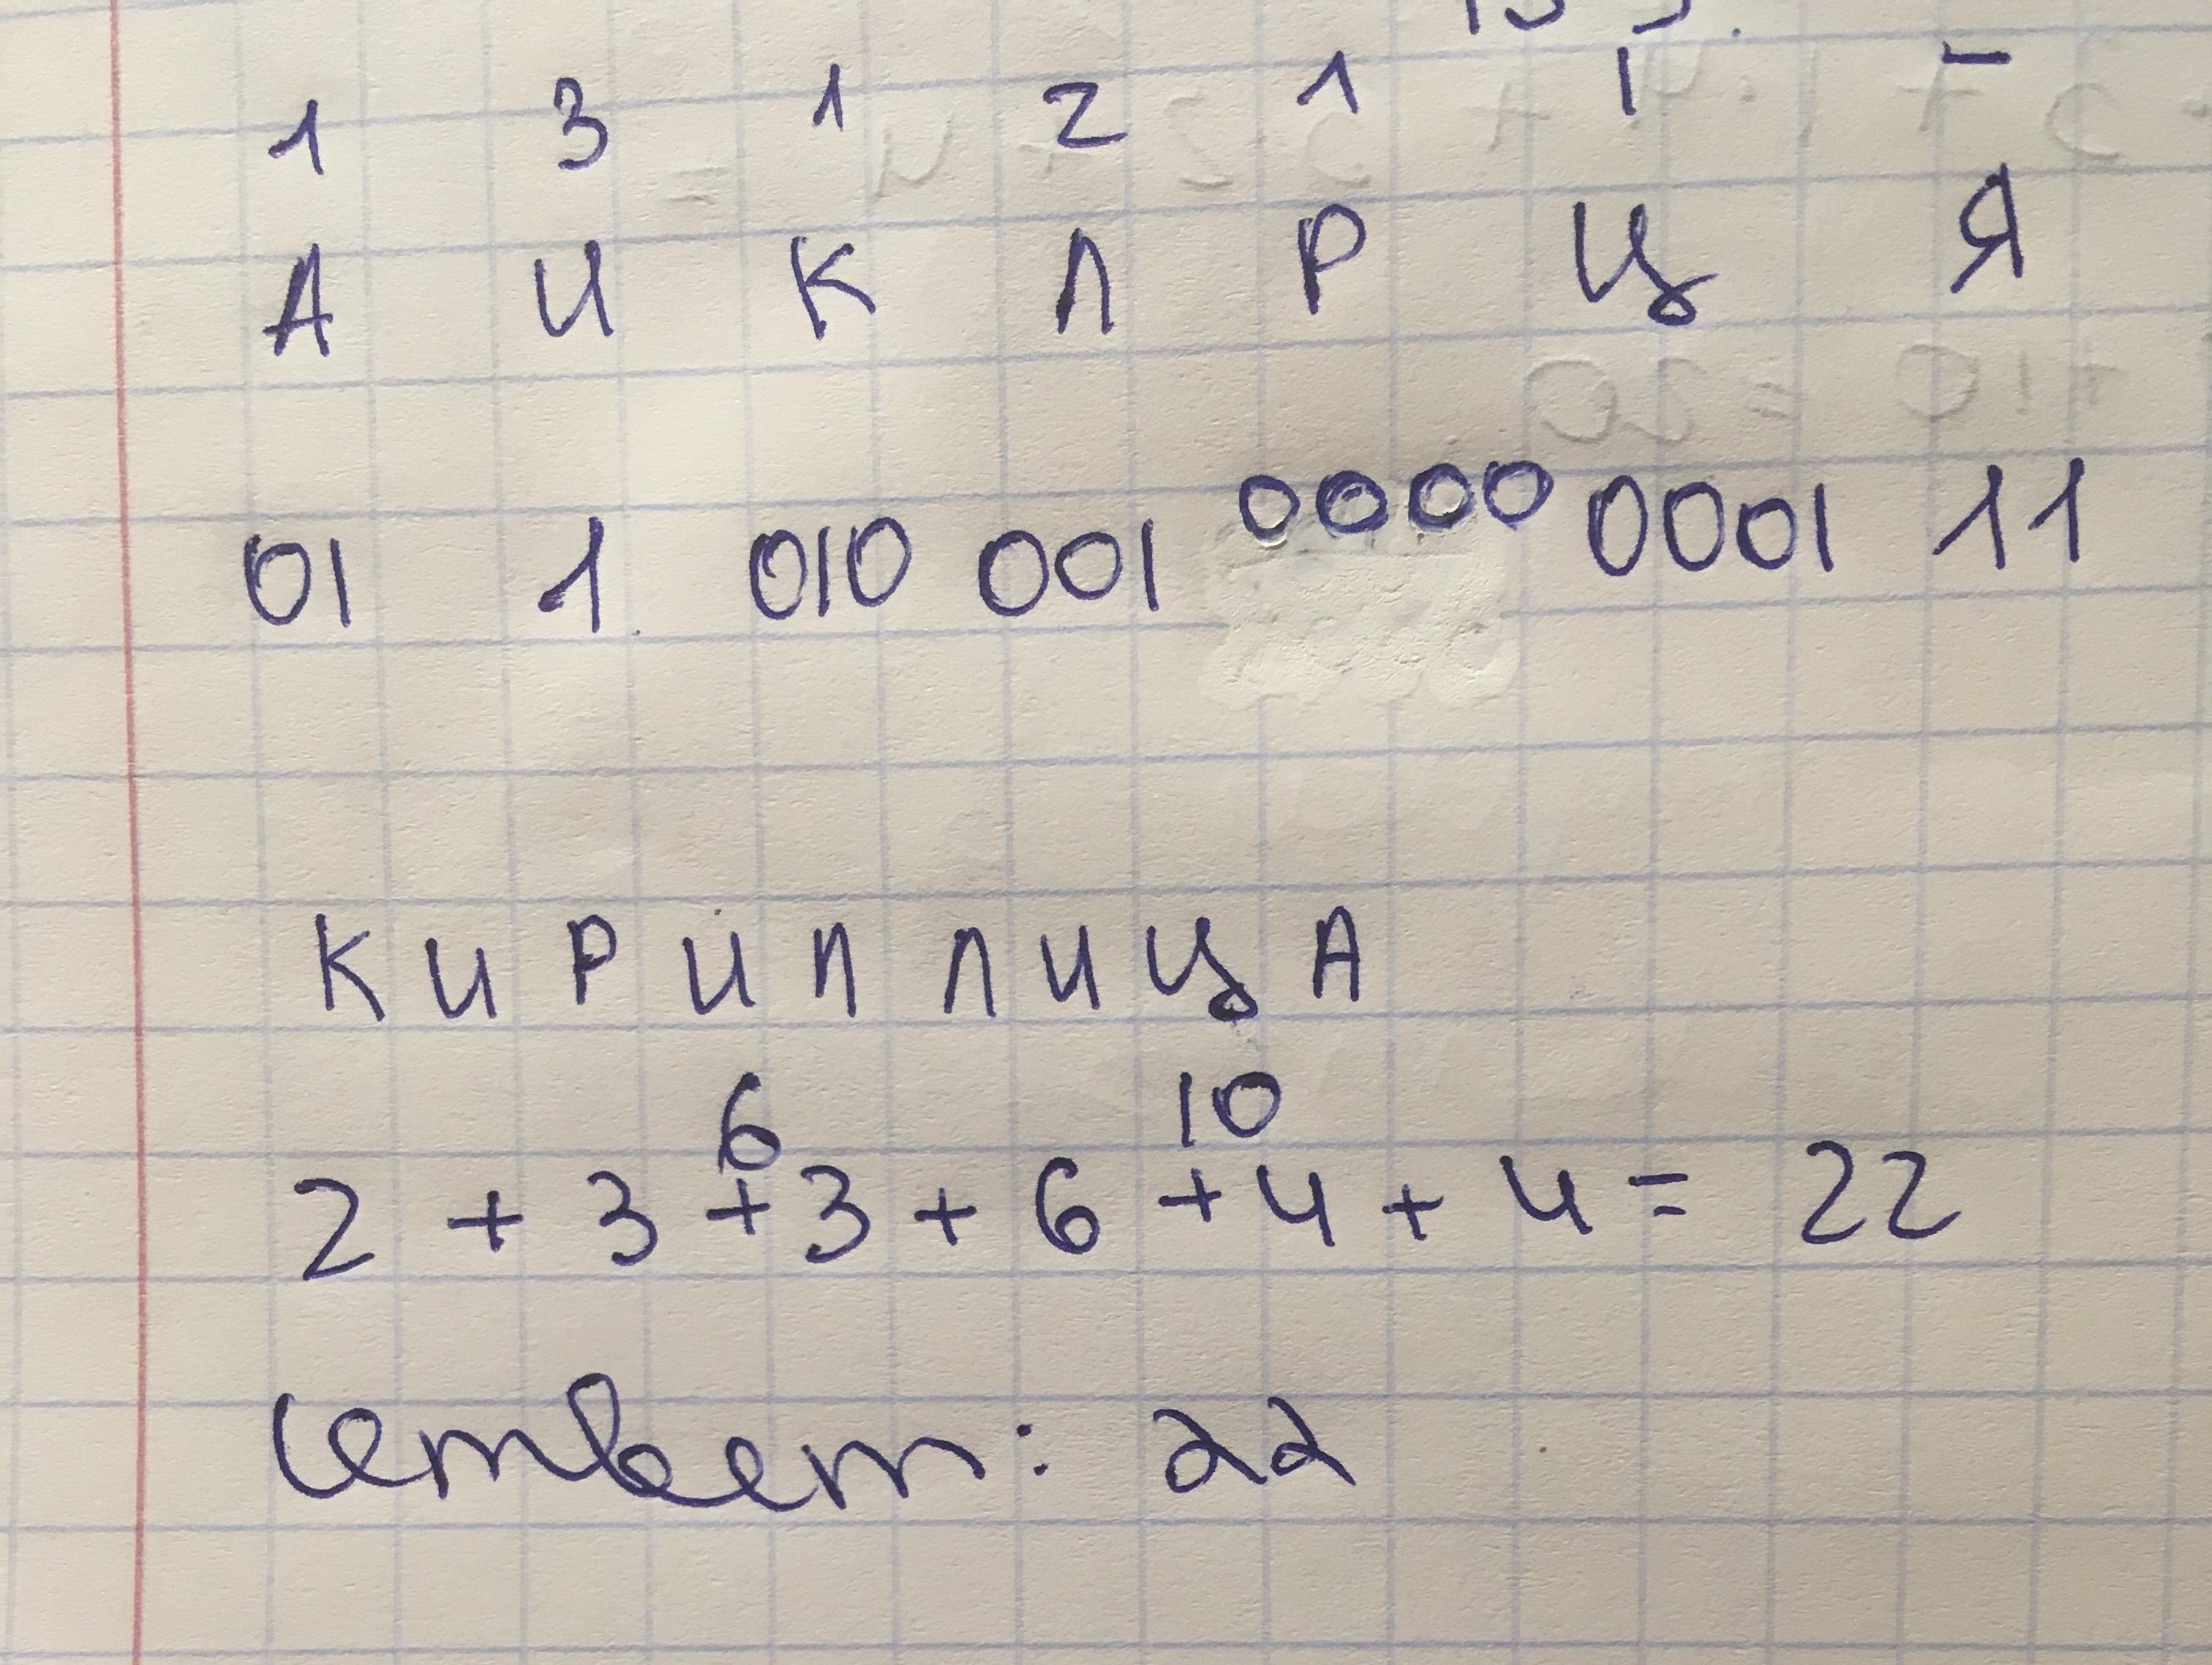 1 3 1 2 1 1 –
А И К Л Р Ц Я
01 1 010 001 0000 0001 11
К И Р И Л Л И Ц А
6 10
2 + 3 + 3 + 6 + 4 + 4 = 22
Ответ: 22